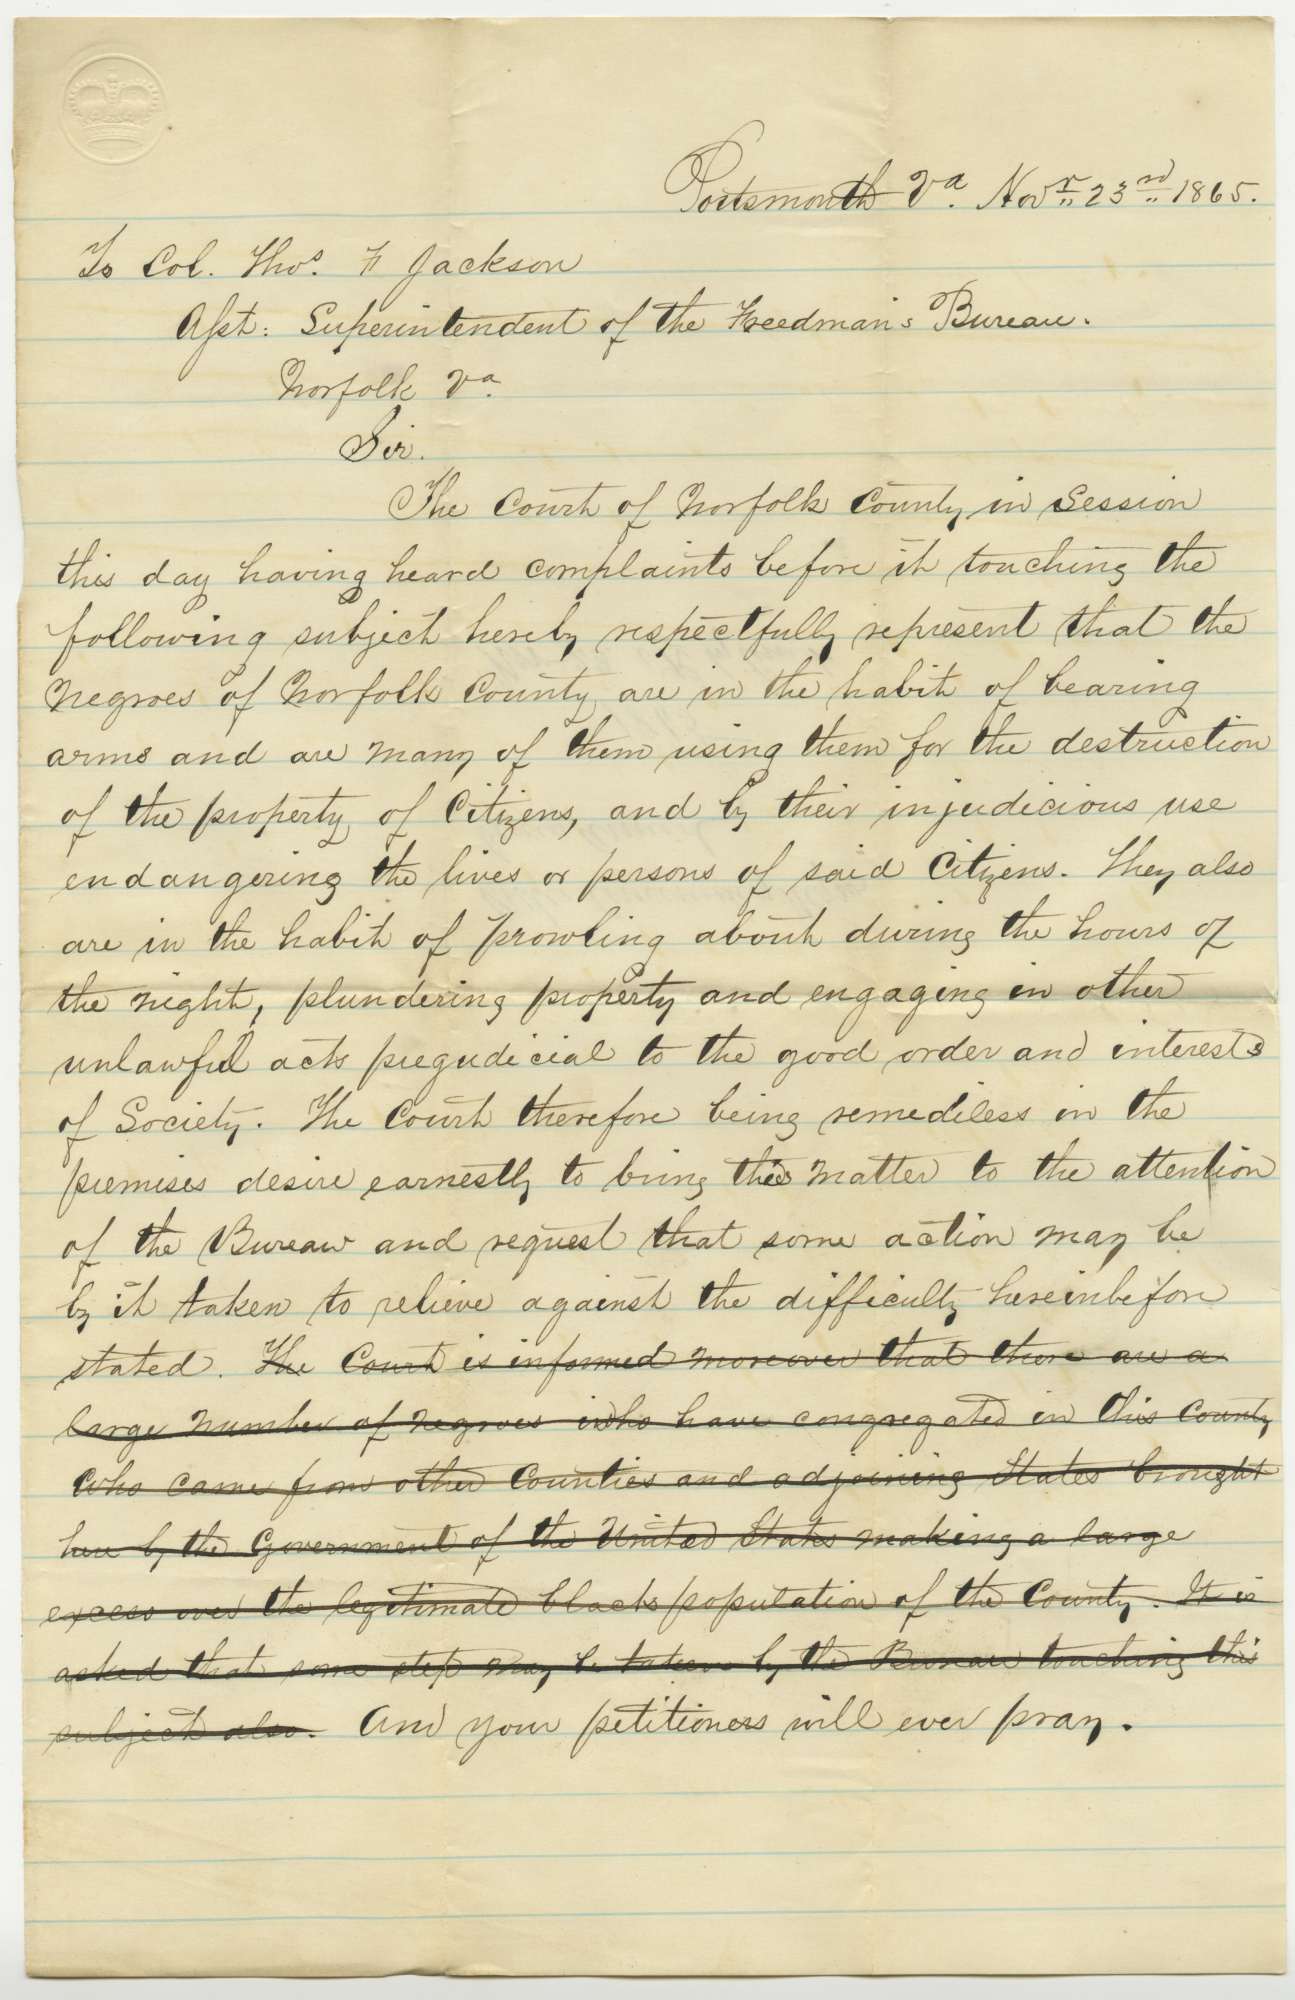 Portsmouth Va. Novr 23rd 1865.
To Col. Thos. F Jackson
Asst: Superintendent of the Freedman's Bureau.
Norfolk Va.
Sir.
The Court of Norfolk County in Session
this day having heard complaints before it touching the
following subject hereby respectfully represent that the
Negroes of Norfolk County are in the habit of bearing
arms and are many of them using them for the destruction
of the property of Citizens, and by their injudicious use
endangering the lives or persons of said Citizens. They also
are in the habit of prowling about during the hours of
the night, plundering property and engaging in other
unlawful acts pregudicial to the good order and interests
of Society. The Court therefore being remediless in the
premises desire earnestly to bring this matter to the attention
of the Bureau and request that some action may be
by it taken to relieve against the difficulty hereinbefore
stated. The Court is informed moreover that there are a
large number of negroes who have congregated in this County
who came from other Counties and adjoining States brought
here by the Government of the United States making a large
excess over the legitimate black population of the County. It is
asked that some step may be taken by the Bureau touching this
subject also. And your petitioners will ever pray.